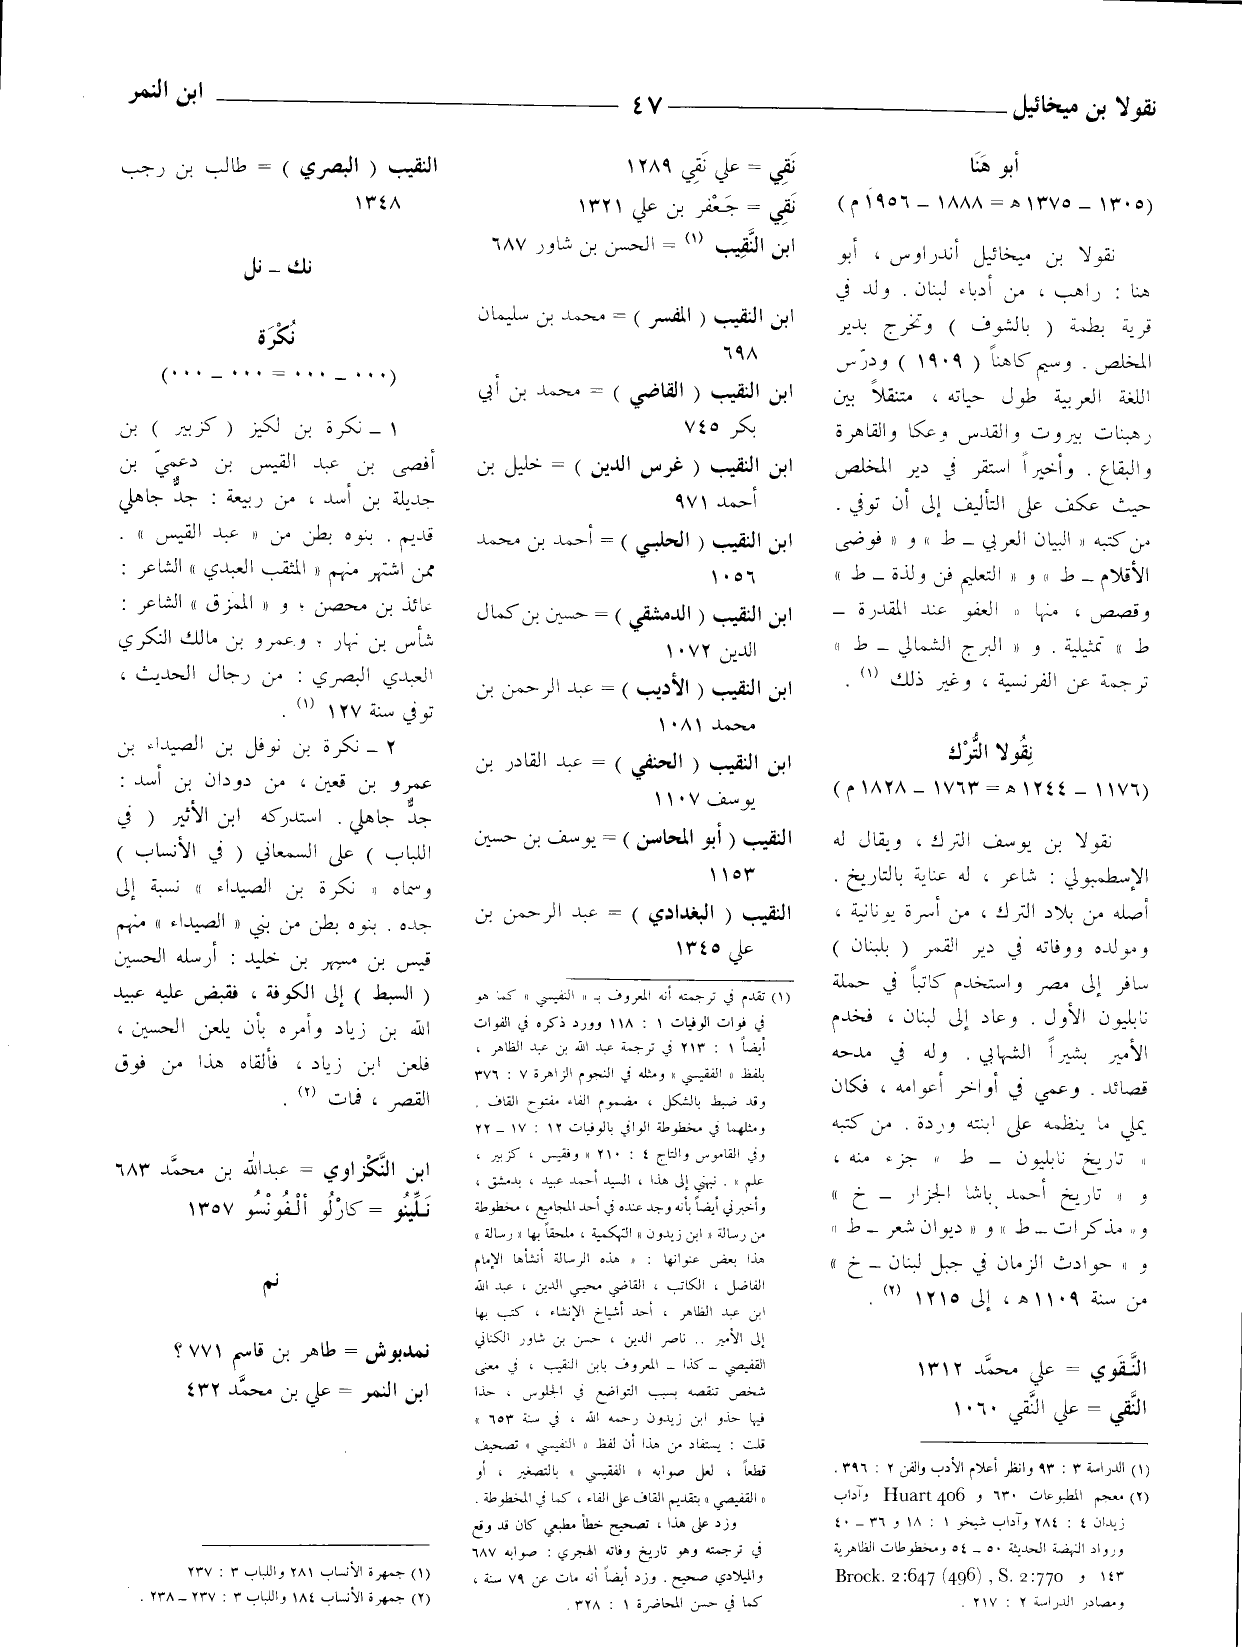 نقولا بن ميخائيل ٤٧ ابن النمر
أبو هَنَا
(١٣٠٥ ـ ١٣٧٥ ه = ١٨٨٨ ـ ١٩٥٦ م)
نقولا بن ميخائيل أندراوس ، أبو
هنا : راهب ، من أدباء لبنان . ولد في
قرية بطمة ( بالشوف ) وتخرج بدير
المخلص . وسيم كاهناً ( ١٩٠٩ ) ودرّس
اللغة العربية طول حياته ، متنقلاً بين
رهبنات بيروت والقدس وعكا والقاهرة
والبقاع . وأخيراً استقر في دير المخلص
حيث عكف على التأليف إلى أن توفي .
من كتبه « البيان العربي ـ ط » و « فوضى
الأقلام ـ ط » و « التعليم فن ولذة ـ ط »
وقصص ، منها « العفو عند المقدرة ـ
ط » تمثيلية . و « البرج الشمالي ـ ط »
ترجمة عن الفرنسية ، وغير ذلك (١) .
نِقُولا التُّرْك
(١١٧٦ ـ ١٢٤٤ ه = ١٧٦٣ ـ ١٨٢٨ م)
نقولا بن يوسف الترك ، ويقال له
الإسطمبولي : شاعر ، له عناية بالتاريخ .
أصله من بلاد الترك ، من أسرة يونانية ،
ومولده ووفاته في دير القمر ( بلبنان )
سافر إلى مصر واستخدم كاتباً في حملة
نابليون الأول . وعاد إلى لبنان ، فخدم
الأمير بشيراً الشهابي . وله في مدحه
قصائد . وعمي في أواخر أعوامه ، فكان
يملي ما ينظمه على ابنته وردة . من كتبه
« تاريخ نابليون ـ ط » جزء منه ،
و « تاريخ أحمد باشا الجزار ـ خ »
و« مذكرات ـ ط » و « ديوان شعر ـ ط »
و « حوادث الزمان في جبل لبنان ـ خ »
من سنة ١١٠٩ ه ، إلى ١٢١٥ (٢) .
النَّقَوي = علي محمَّد ١٣١٢
النَّقي = علي النَّقي ١٠٦٠
(١) الدراسة ٣ : ٩٣ وانظر أعلام الأدب والفن ٢ : ٣٩٦ .
(٢) معجم المطبوعات ٦٣٠ و Huart 406 وآداب
زيدان ٤ : ٢٨٤ وآداب شيخو ١ : ١٨ و ٣٦ ـ ٤٠
ورواد النهضة الحديثة ٥٠ ـ ٥٤ ومخطوطات الظاهرية
١٤٣ و Brock. 2:647 (496) , S. 2:770
ومصادر الدراسة ٢ : ٢١٧ .
نَقِي = علي نَقِي ١٢٨٩
نَقِي = جَعْفر بن علي ١٣٢١
ابن النَّقِيب (١) = الحسن بن شاور ٦٨٧
ابن النقيب ( المفسر ) = محمد بن سليمان
٦٩٨
ابن النقيب ( القاضي ) = محمد بن أبي
بكر ٧٤٥
ابن النقيب ( غرس الدين ) = خليل بن
أحمد ٩٧١
ابن النقيب ( الحلبي ) = أحمد بن محمد
١٠٥٦
ابن النقيب ( الدمشقي ) = حسين بن كمال
الدين ١٠٧٢
ابن النقيب ( الأديب ) = عبد الرحمن بن
محمد ١٠٨١
ابن النقيب ( الحنفي ) = عبد القادر بن
يوسف ١١٠٧
النقيب ( أبو المحاسن ) = يوسف بن حسين
١١٥٣
النقيب ( البغدادي ) = عبد الرحمن بن
علي ١٣٤٥
(١) تقدم في ترجمته أنه المعروف بـ « النفيسي » كما هو
في فوات الوفيات ١ : ١١٨ وورد ذكره في الفوات
أيضاً ١ : ٢١٣ في ترجمة عبد الله بن عبد الظاهر ،
بلفظ « الفقيسي » ومثله في النجوم الزاهرة ٧ : ٣٧٦
وقد ضبط بالشكل ، مضموم الفاء مفتوح القاف .
ومثلهما في مخطوطة الوافي بالوفيات ١٢ : ١٧ ـ ٢٢
وفي القاموس والتاج ٤ : ٢١٠ « وفقيس ، كزبير ،
علم » . نبهني إلى هذا ، السيد أحمد عبيد ، بدمشق ،
وأخبرني أيضاً بأنه وجد عنده في أحد المجاميع ، مخطوطة
من رسالة « ابن زيدون » التهكمية ، ملحقاً بها « رسالة »
هذا بعض عنوانها : « هذه الرسالة أنشأها الإمام
الفاضل ، الكاتب ، القاضي محيي الدين ، عبد الله
ابن عبد الظاهر ، أحد أشياخ الإنشاء ، كتب بها
إلى الأمير .. ناصر الدين ، حسن بن شاور الكناني
القفيصي ـ كذا ـ المعروف بابن النقيب ، في معنى
شخص تنقصه بسبب التواضع في الجلوس ، حذا
فيها حذو ابن زيدون رحمه الله ، في سنة ٦٥٣ »
قلت : يستفاد من هذا أن لفظ « النفيسي » تصحيف
قطعاً ، لعل صوابه « الفقيسي » بالتصغير ، أو
« القفيصي » بتقديم القاف على الفاء ، كما في المخطوطة .
وزد على هذا ، تصحيح خطأ مطبعي كان قد وقع
في ترجمته وهو تاريخ وفاته الهجري : صوابه ٦٨٧
والميلادي صحيح . وزد أيضاً أنه مات عن ٧٩ سنة ،
كما في حسن المحاضرة ١ : ٣٢٨ .
النقيب ( البصري ) = طالب بن رجب
١٣٤٨
نك ـ نل
نُكْرَة
(٠٠٠ ـ ٠٠٠ = ٠٠٠ ـ ٠٠٠)
١ ـ نكرة بن لكيز ( كزبير ) بن
أفصى بن عبد القيس بن دعميّ بن
جديلة بن أسد ، من ربيعة : جدٌّ جاهلي
قديم . بنوه بطن من « عبد القيس » .
ممن اشتهر منهم « المثقب العبدي » الشاعر :
عائذ بن محصن ؛ و « الممزق » الشاعر :
شأس بن نهار ؛ وعمرو بن مالك النكري
العبدي البصري : من رجال الحديث ،
توفي سنة ١٢٧ (١) .
٢ ـ نكرة بن نوفل بن الصيداء بن
عمرو بن قعين ، من دودان بن أسد :
جدٌّ جاهلي . استدركه ابن الأثير ( في
اللباب ) على السمعاني ( في الأنساب )
وسماه « نكرة بن الصيداء » نسبة إلى
جده . بنوه بطن من بني « الصيداء » منهم
قيس بن مسهر بن خليد : أرسله الحسين
( السبط ) إلى الكوفة ، فقبض عليه عبيد
الله بن زياد وأمره بأن يلعن الحسين ،
فلعن ابن زياد ، فألقاه هذا من فوق
القصر ، فمات (٢) .
ابن النَّكْزاوي = عبدالله بن محمَّد ٦٨٣
نَـلِّينُو = كارْلُو ألْفُونْسُو ١٣٥٧
نم
نمدبوش = طاهر بن قاسم ٧٧١ ؟
ابن النمر = علي بن محمَّد ٤٣٢
(١) جمهرة الأنساب ٢٨١ واللباب ٣ : ٢٣٧
(٢) جمهرة الأنساب ١٨٤ واللباب ٣ : ٢٣٧ ـ ٢٣٨ .